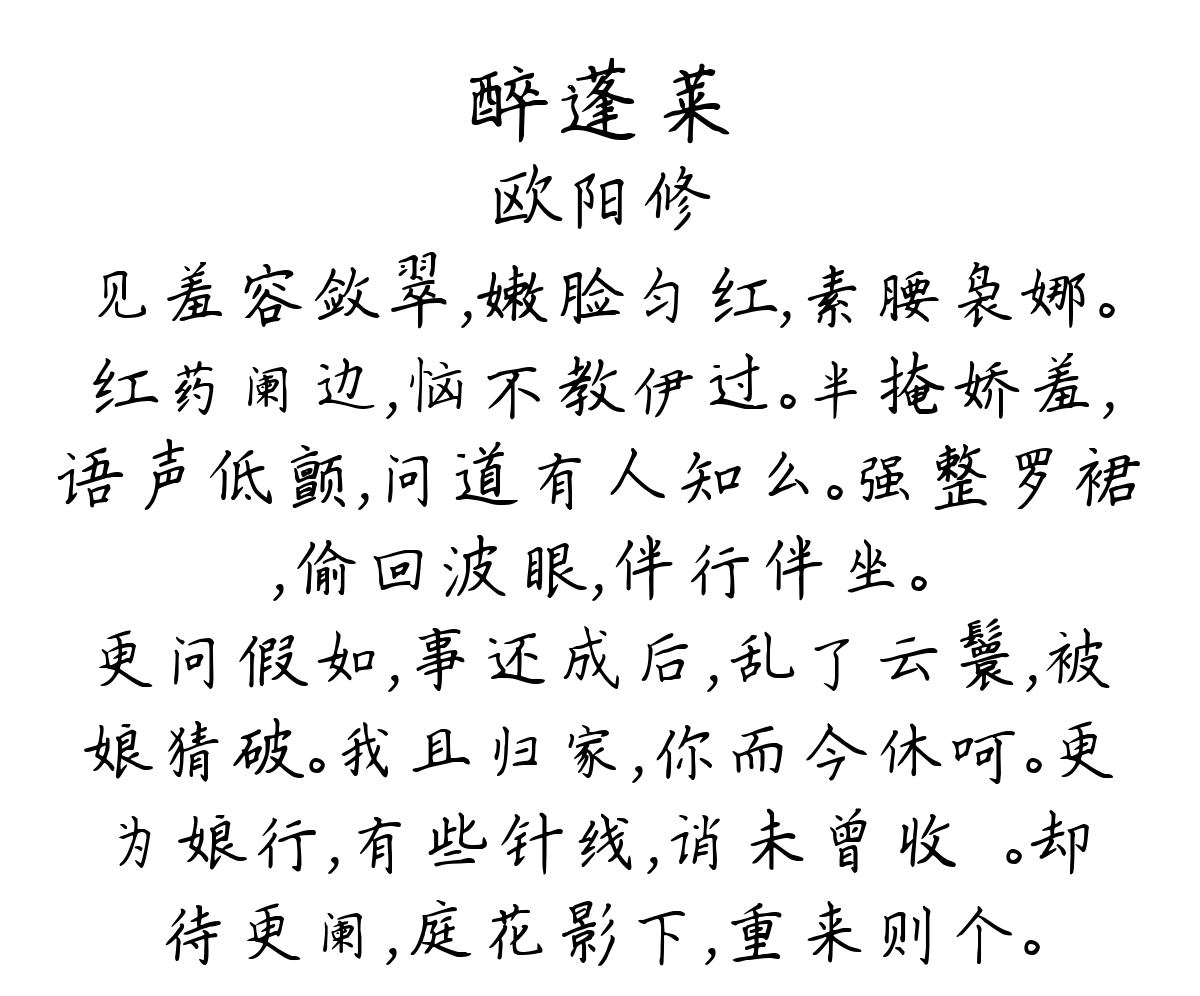 醉蓬莱
欧阳修
见羞容敛翠,嫩脸匀红,素腰袅娜。
红药阑边,恼不教伊过。半掩娇羞,
语声低颤,问道有人知么。强整罗裙
,偷回波眼,伴行伴坐。
更问假如,事还成后,乱了云鬟,被
娘猜破。我且归家,你而今休呵。更
为娘行,有些针线,诮未曾收 。却
待更阑,庭花影下,重来则个。